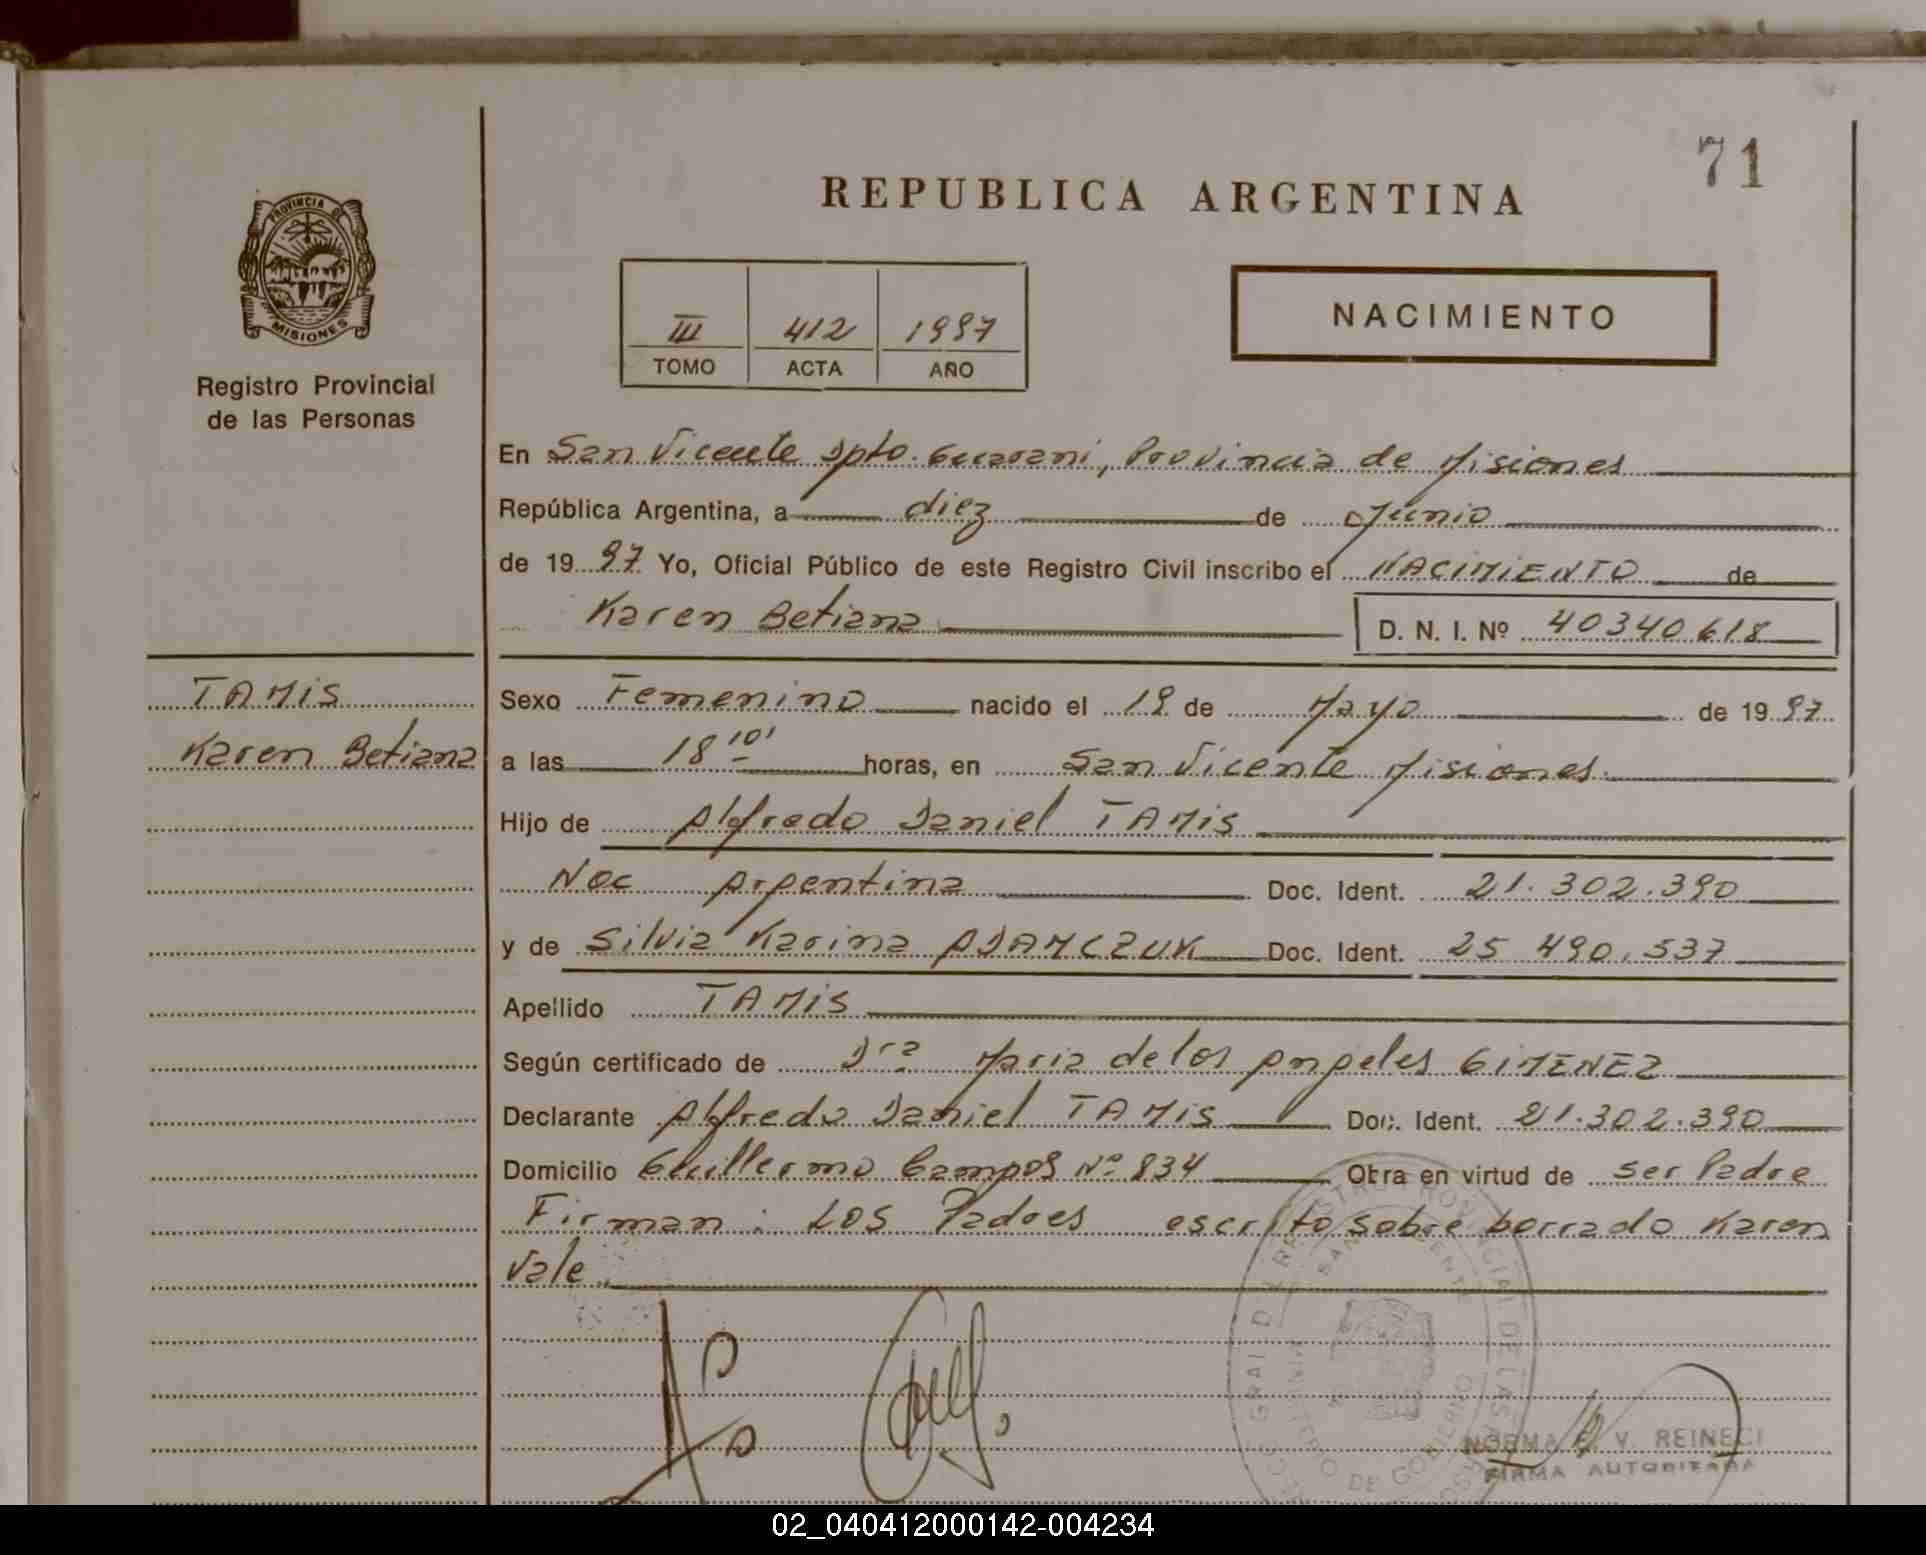 71
REPUBLICA ARGENTINA
PROVINCIA DE
MISIONES
III 412 1997
TOMO ACTA AÑO
NACIMIENTO
Registro Provincial
de las Personas
En San Vicente Dpto. Guarani, Provincia de Misiones
República Argentina, a diez de Junio
de 19 97 Yo, Oficial Público de este Registro Civil inscribo el NACIMIENTO de
Karen Betiana D. N. I. Nº 40340618
TAMIS
Karen Betiana
Sexo Femenino nacido el 19 de Mayo de 19 97
a las 18 10' horas, en San Vicente Misiones.
Hijo de Alfredo Daniel TAMIS
Nac Argentina Doc. Ident. 21.302.390
y de Silvia Karina ADAMCZUK Doc. Ident. 25 490.537
Apellido TAMIS
Según certificado de Dra Maria de los Angeles GIMENEZ
Declarante Alfredo Daniel TAMIS Doc. Ident. 21.302.390
Domicilio Guillermo Campos Nº 834 Obra en virtud de ser Padre
Firman: Los Padres escrito sobre borrado Karen
Vale.
NORMA V. REINECI
FIRMA AUTORIZADA
02_040412000142-004234